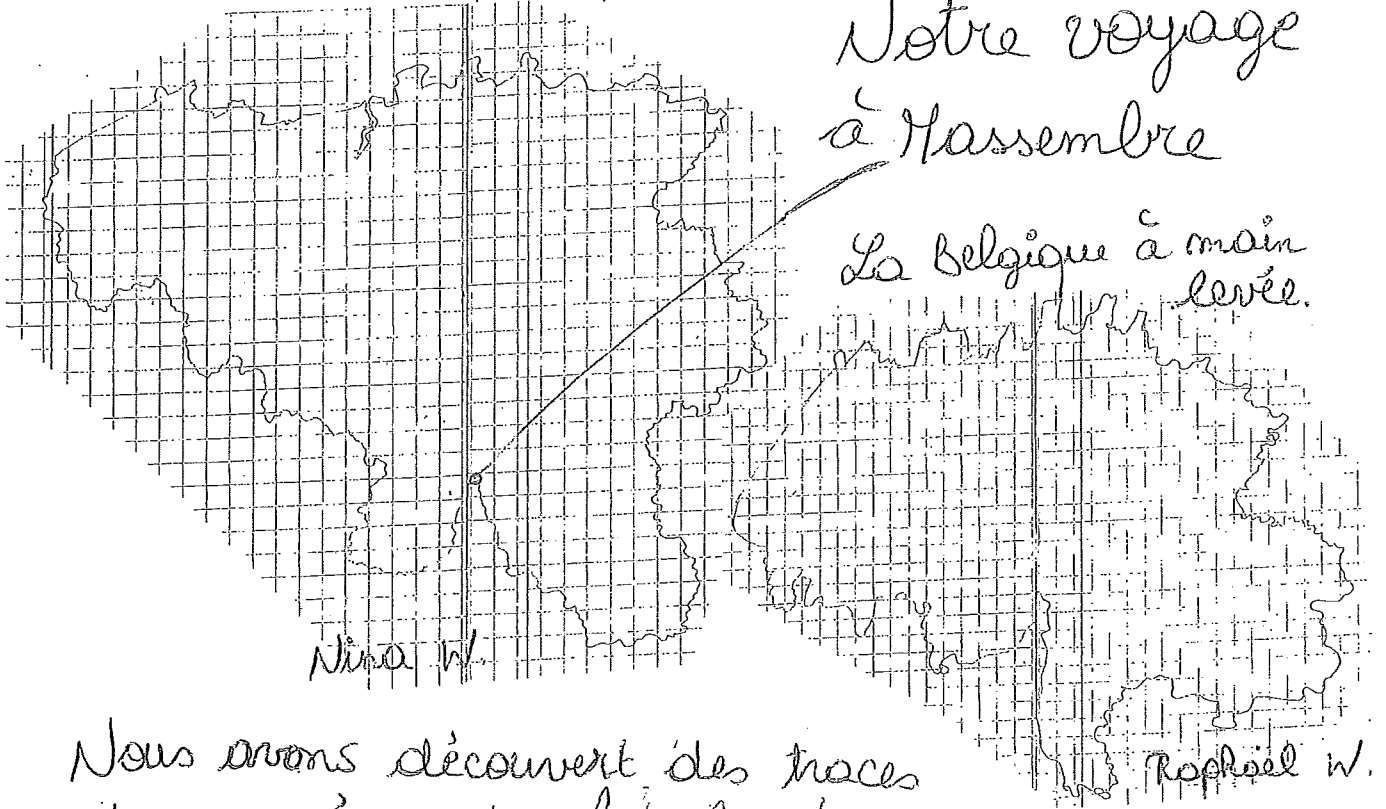 Notre voyage
à Massembre
La Belgique à main
levée.
Nina W.
Raphaël W.
Nous avons découvert des traces